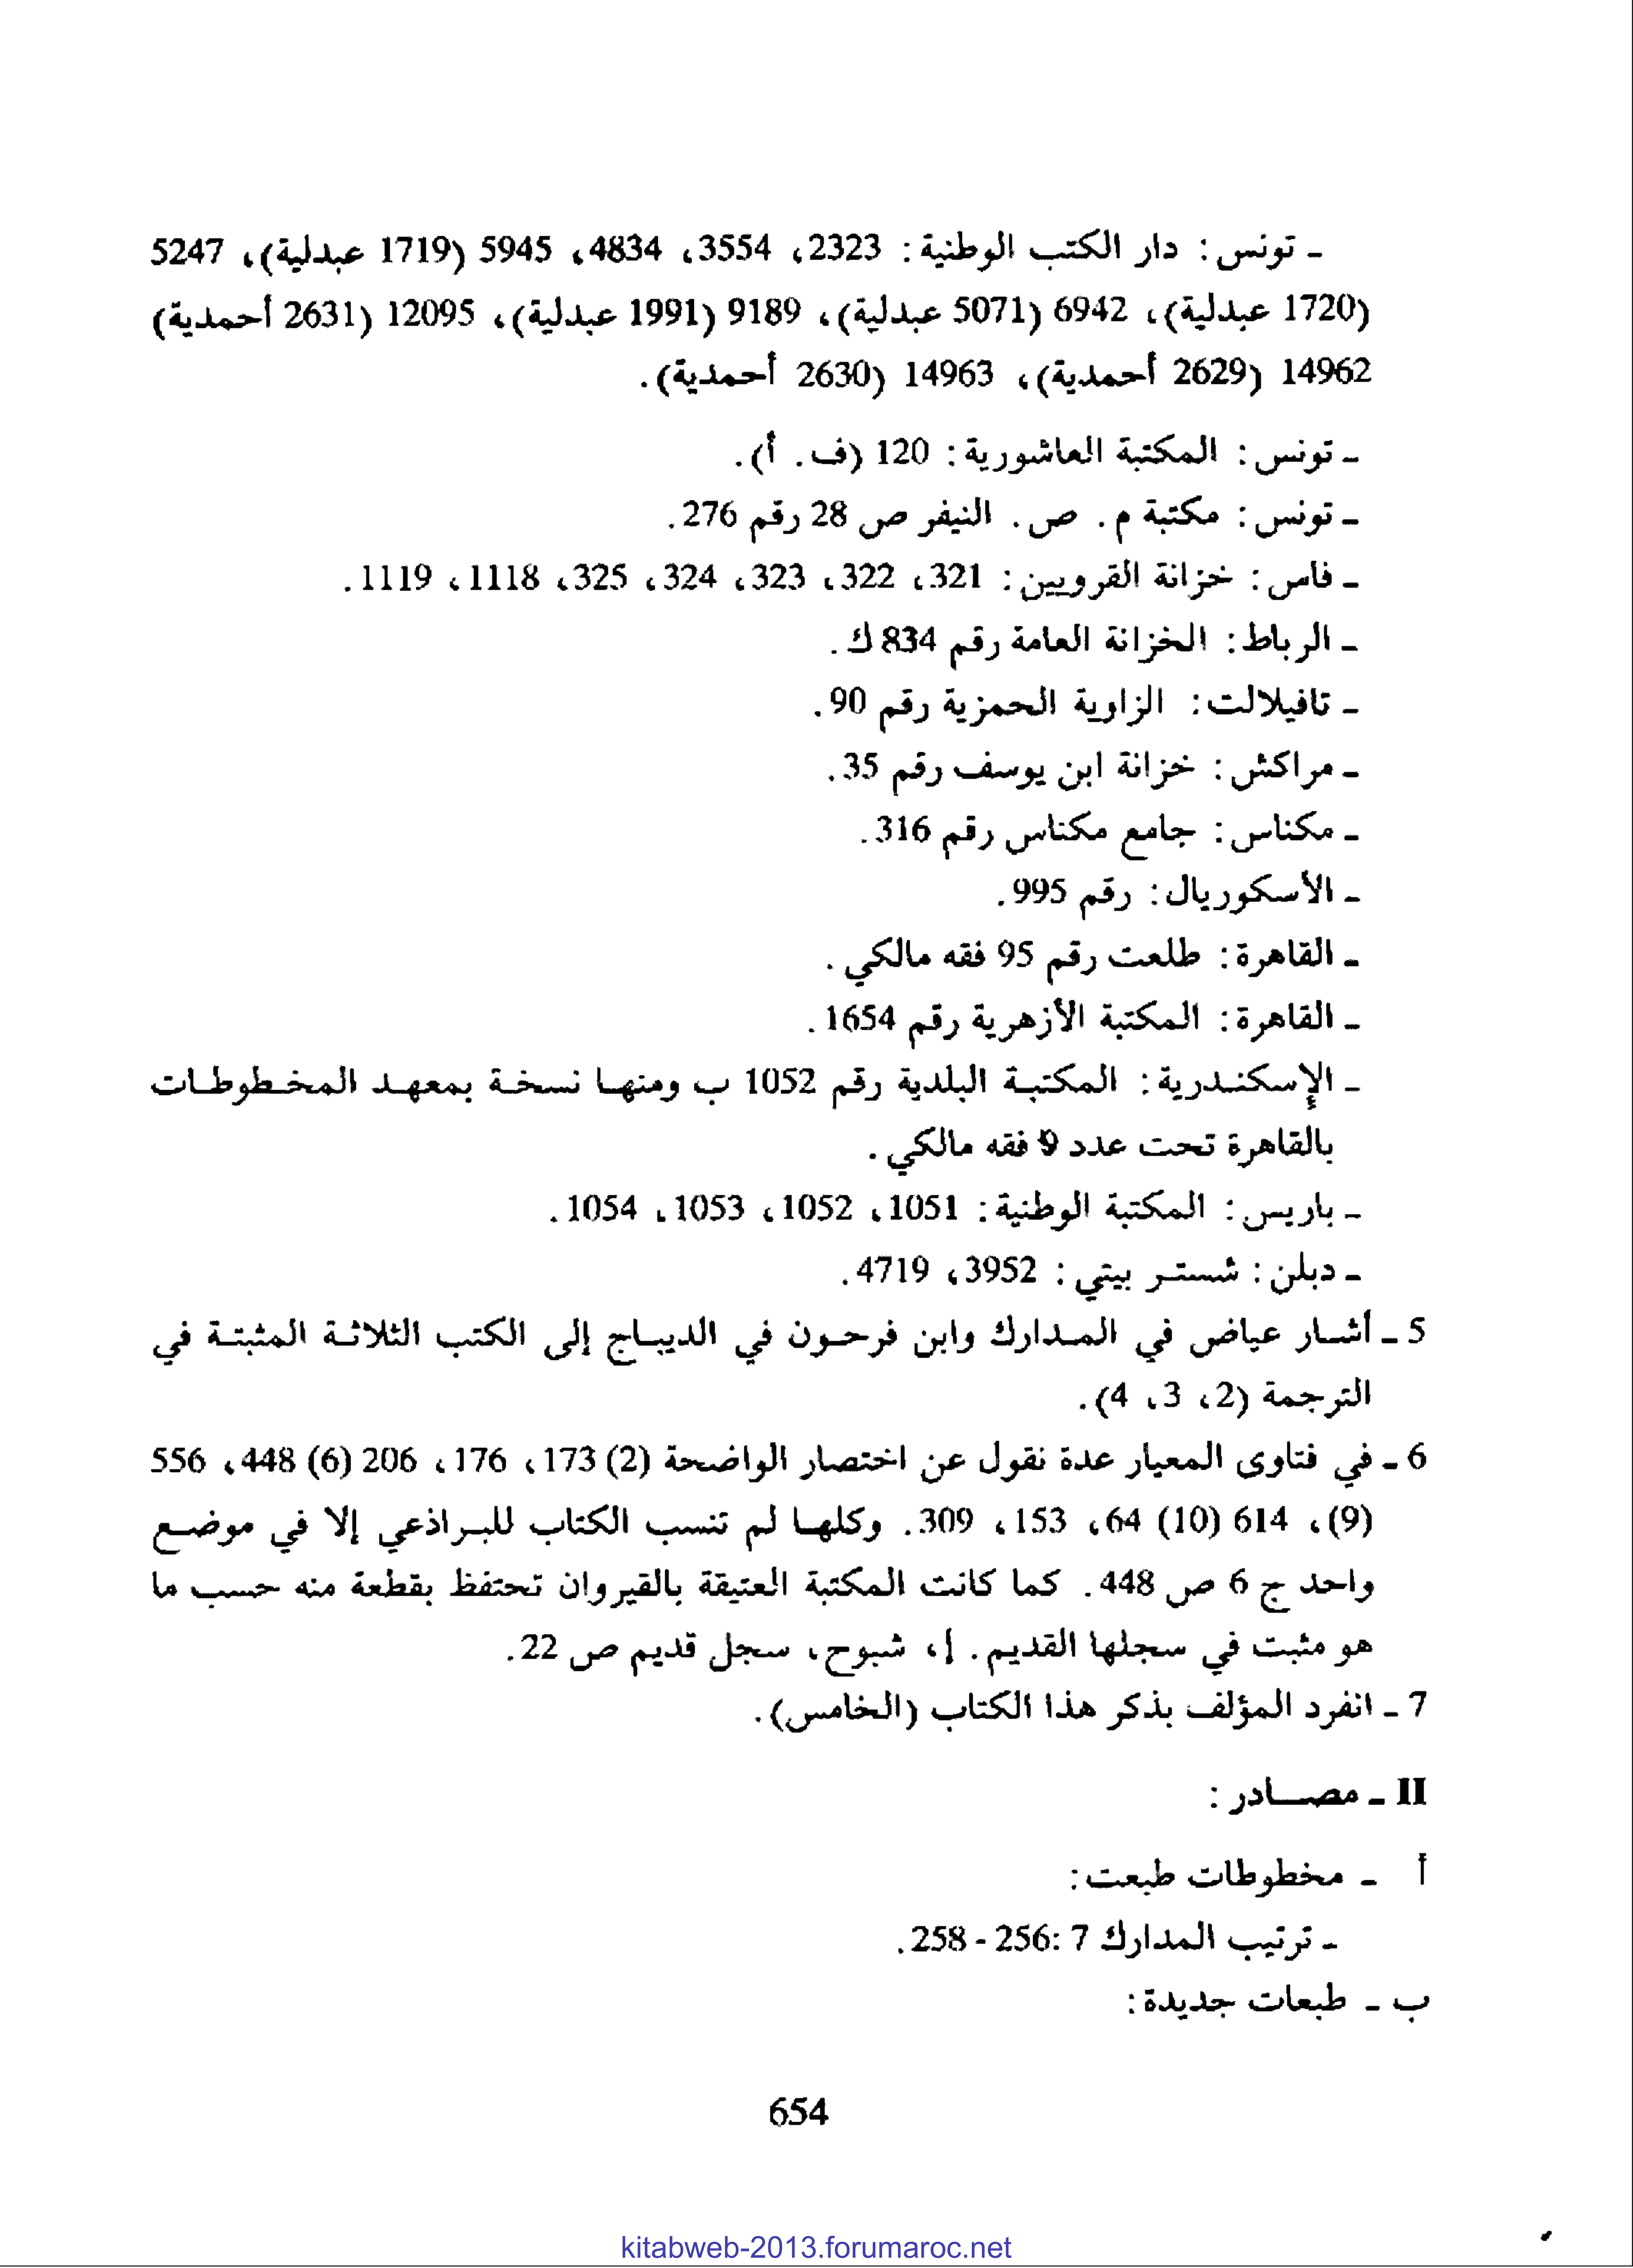 ـ تونس : دار الكتب الوطنية : 2323، 3554، 4834، 5945 (1719 عبدلية)، 5247
(1720 عبدلية)، 6942 (5071 عبدلية)، 9189 (1991 عبدلية)، 12095 (2631 أحمدية)
14962 (2629 أحمدية)، 14963 (2630 أحمدية).
ـ تونس : المكتبة العاشورية : 120 (ف. أ).
ـ تونس : مكتبة م. ص. النيفر ص 28 رقم 276.
ـ فاس : خزانة القرويين : 321، 322، 323، 324، 325، 1118، 1119.
ـ الرباط : الخزانة العامة رقم 834 ك.
ـ تافيلالت : الزاوية الحمزية رقم 90.
ـ مراكش : خزانة ابن يوسف رقم 35.
ـ مكناس : جامع مكناس رقم 316.
ـ الأسكوريال : رقم 995.
ـ القاهرة : طلعت رقم 95 فقه مالكي.
ـ القاهرة : المكتبة الأزهرية رقم 1654.
ـ الإسكندرية : المكتبة البلدية رقم 1052 ب ومنها نسخة بمعهد المخطوطات
بالقاهرة تحت عدد 9 فقه مالكي.
ـ باريس : المكتبة الوطنية : 1051، 1052، 1053، 1054.
ـ دبلن : شستر بيتي : 3952، 4719.
5 ـ أشار عياض في المدارك وابن فرحون في الديباج إلى الكتب الثلاثة المثبتة في
الترجمة (2، 3، 4).
6 ـ في فتاوى المعيار عدة نقول عن اختصار الواضحة (2) 173، 176، 206 (6) 448، 556
(9)، 614 (10) 64، 153، 309. وكلها لم تنسب الكتاب للبراذعي إلا في موضع
واحد ج 6 ص 448. كما كانت المكتبة العتيقة بالقيروان تحتفظ بقطعة منه حسب ما
هو مثبت في سجلها القديم. إ، شبوح، سجل قديم ص 22.
7 ـ انفرد المؤلف بذكر هذا الكتاب (الخامس).
II ـ مصادر :
أ ـ مخطوطات طبعت :
ـ ترتيب المدارك 7 :256 - 258.
ب ـ طبعات جديدة :
654
kitabweb-2013.forumaroc.net